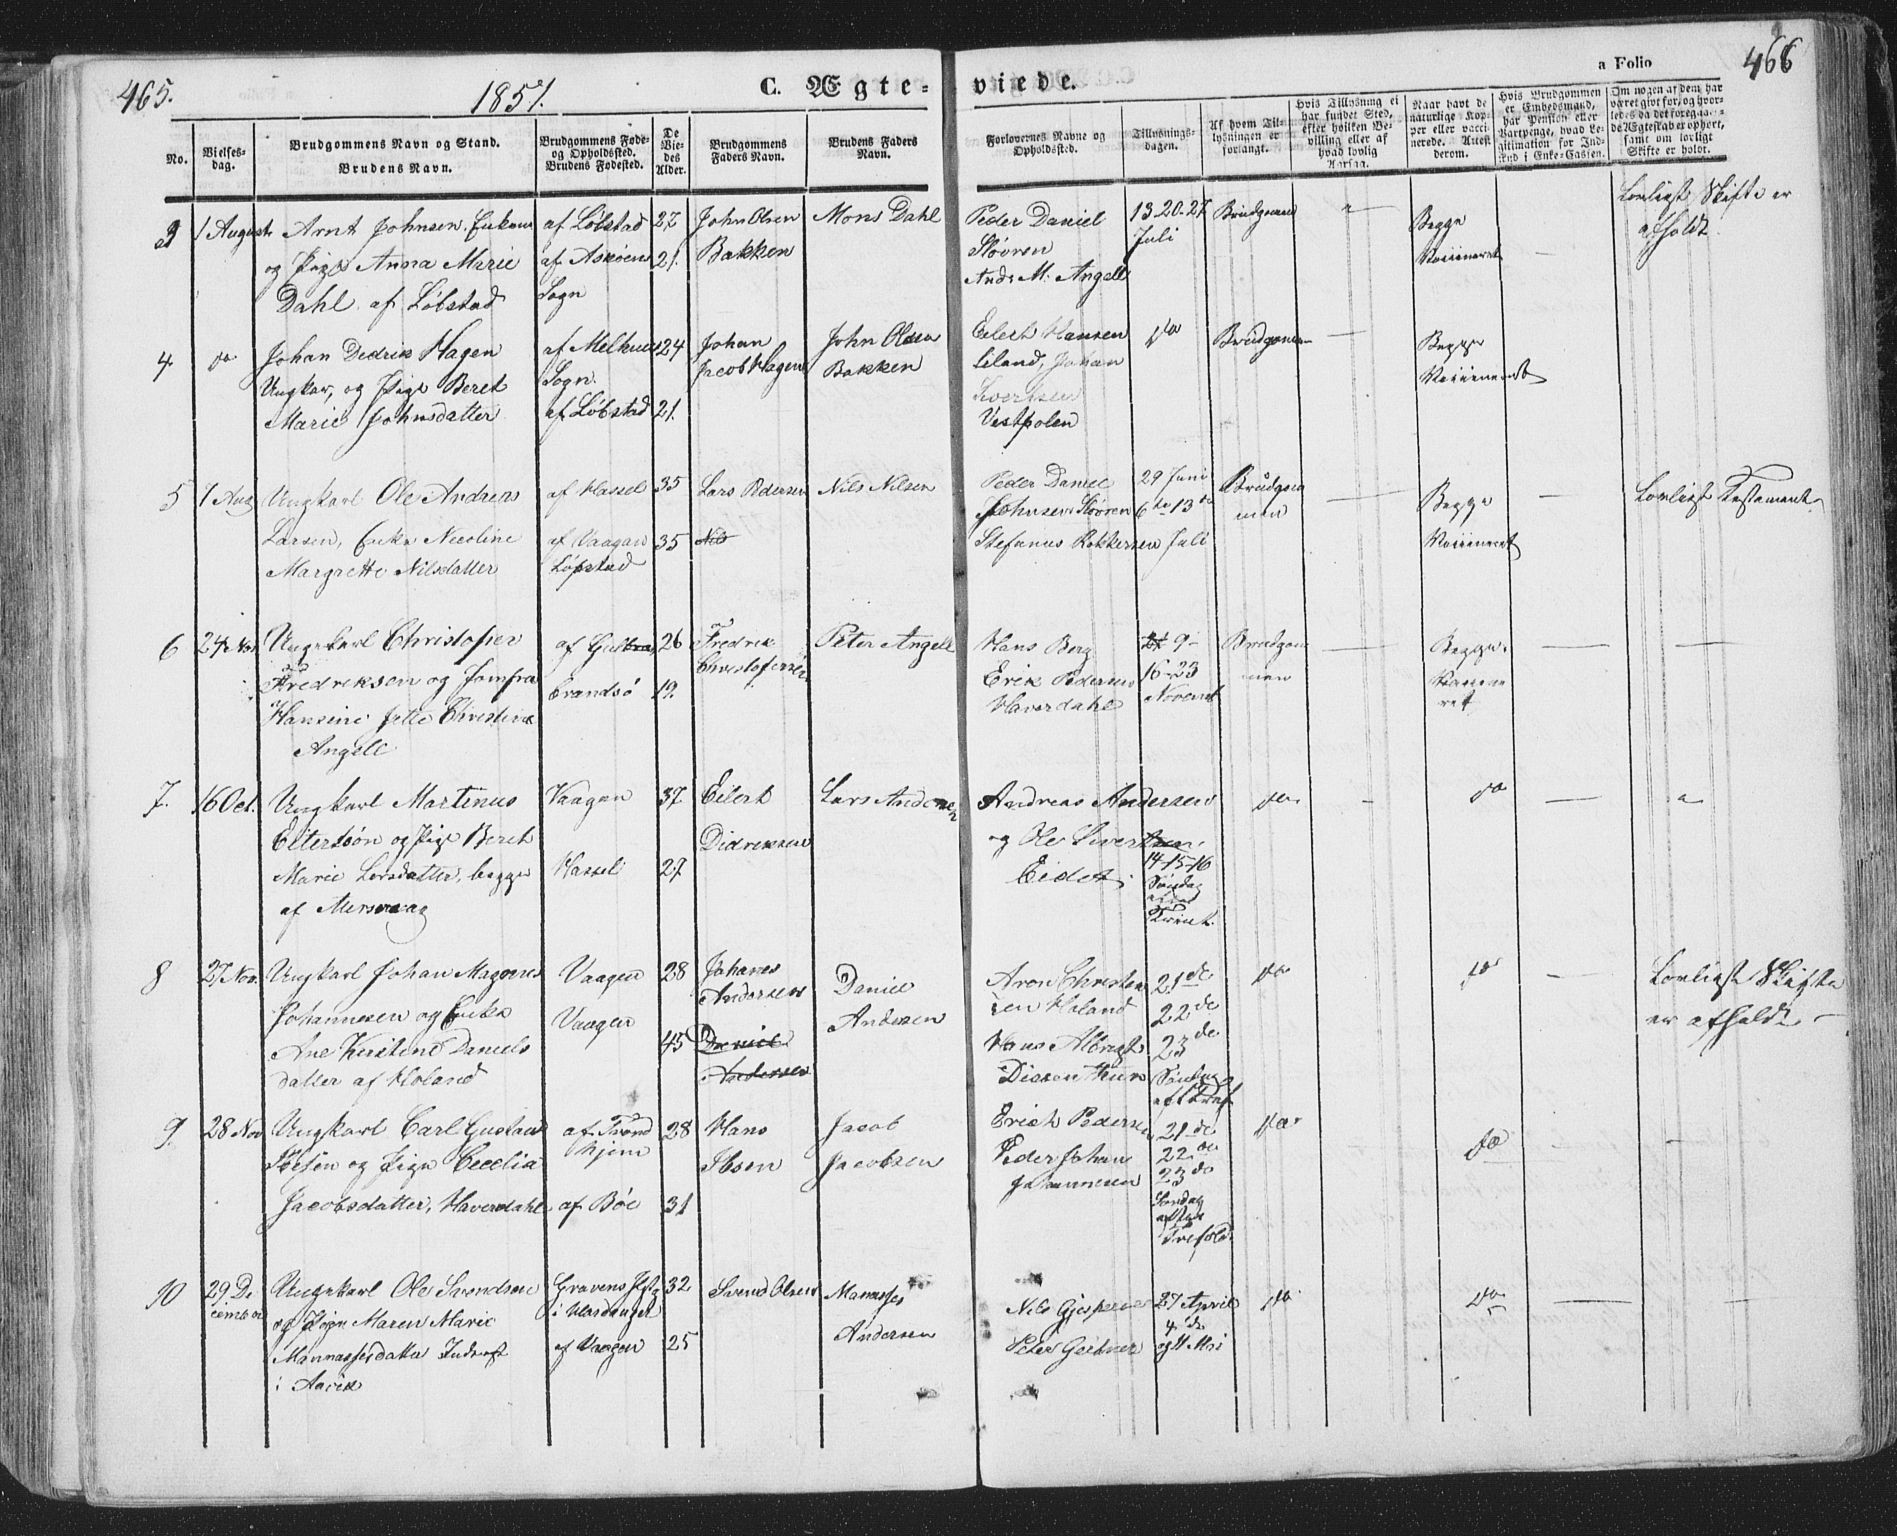 465.
1851.
C. Ægte-
viede.
a Folio
466
No.
Vielses-
dag.
Brudgommens Navn og Stand.
Brudens Navn.
Brudgommens Føde-
og Opholdsted.
Brudens Fødested.
De
Vie-
des
Alder.
Brudgommens
Faders Navn.
Brudens Faders
Navn.
Forlovernes Navne og
Opholdsted.
Tillysnings-
dagen.
Af hvem Til-
lysningen er
forlangt.
Hvis Tillysning ei
har fundet Sted,
efter hvilken Be-
villing eller af
hvad lovlig
Aarsag.
Naar havt de
naturlige Kop-
per eller vacci-
nerede. Attest
derom.
Hvis Brudgommen
er Embedsmand,
har Pension eller
Vartpenge, hvad Le-
gitimation for Ind-
skud i Enke-Cassen.
Om nogen af dem har
været givt før, og hvor-
ledes da det foregaaen-
de Ægteskab er ophørt,
samt om lovligt
Skifte er holdt.
3
1 August
Arnt Johnsen, Enkem
og Pige Anna Marie
Dahl af Löbstad
af Löbstad
af Asköen
Sogn
27
21.
John Olsen
Bakken
Mons Dahl
Peder Daniel
Støvren
And. M. Angell
13. 20. 27.
Juli
Brudgomen
Begge
Vaccineret
Lovligt Skifte er
afholdt.
4.
do
Johan Dedrik Hagen
Ungkar, og Pige Beret
Marie Johnsdatter
af Melhuus
Sogn.
af Löbstad
24
21.
Johan
Jacob Hagen
John Olsen
Bakken
Eilert Hansen
Eiland, Johan
Sivertsen
Vestpolen
do
Brudgomen
Begge
Vaccineret
5
1 Aug
Ungkarl Ole Andreas
Larsen, Enke Nicoline
Margrette Nilsdatter
af Hassel
af Vaagan
Löpstad
35
35
Lars Pedersen
Nils
Nils Nilsen
Peder Daniel
Johnsen Støvren
Stefanus Rokkersen
29 Juni
6te 13de
Juli
Brudgom
men
Begge
Vaccineret
Lovligt Testament
6
24 Nov
Ungekarl Christopher
Fredriksen og Jomfru
Hansine Jette Christine
Angell
brandsö
26
19.
Fredrik
Christofersen
Peter Angell
Hans Berg
Erik Pedersen
Haverdahl
9-
16-23
Novemb
Brudgom
men
Begge
Vaccine
ret
7.
16 Oct.
Ungkarl Martinus
Eltersön og Pige Beret
Marie Larsdatter, begge
af Mersvaag
Vaagen
Hassel
37
27
Eilert
Didriksen
Lars Andersen
Andreas Andersen
og Ole Sivertsen,
Eidet.
14-15-16
Söndag
Trinit.
do
do
8
27 Nov.
Ungkarl Johan Magnus
Johannesen og Enke
Ane Kirstine Daniels
datter af Holand
Vaagen
Vaagen
28
45
Johanes
Andersen
Daniel
Andersen
Daniel
Andersen
Aron Christen
sen Holand
Hans Albregt
21de
22de
23de
Söndag
eft Tref
do
do
Lovligt Skifte
er afholdt
9.
28 Nov
Ungkarl Carl Gustav
Ibsen og Pige Cecelia
Jacobsdatter, Haverdahl
af Trond
hjem
af Böe
28
31
Hans
Ibsen
Jacob
Jacobsen
Erick Pedersen
Peder Johan
Johannesen
21de
22de
23de
Söndag
efter
Trefold.
do
do
10
29 De
cember
Ungekarl Ole Svendsen
og Pige Maren Marie
Mannassesdatter Inderst
Gravens Pstg
i Hardanger
af Vaagen
32
25
Svend Olsen
Manasses
Andersen
Nils Gjespersen
27 April
4de
og 11 Mai
do
do